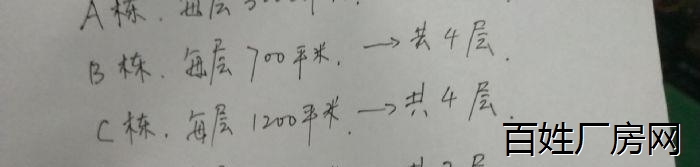 A栋. 每层
B栋. 每层700平米. → 共4层.
C栋. 每层1200平米. → 共4层.
百姓厂房网